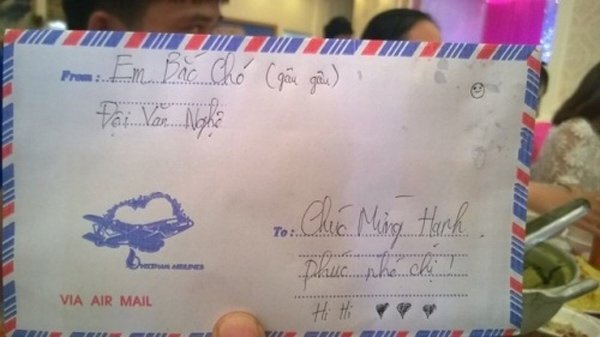 From: Em Bắc Chó (gâu gâu)
Đội Văn Nghệ
VIETNAM AIRLINES
To: Chúc Mừng Hạnh
phúc nhé chị!
VIA AIR MAIL
Hi Hi